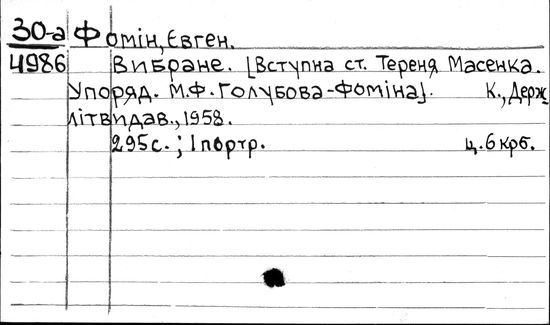 30-а Фомін, Євген.
4986 Вибране. [Вступна ст. Тереня Масенка.
Упоряд. М.Ф. Голубова-Фоміна]. К., Держ
літвидав., 1958.
295с.; 1портр. ц. 6 крб.